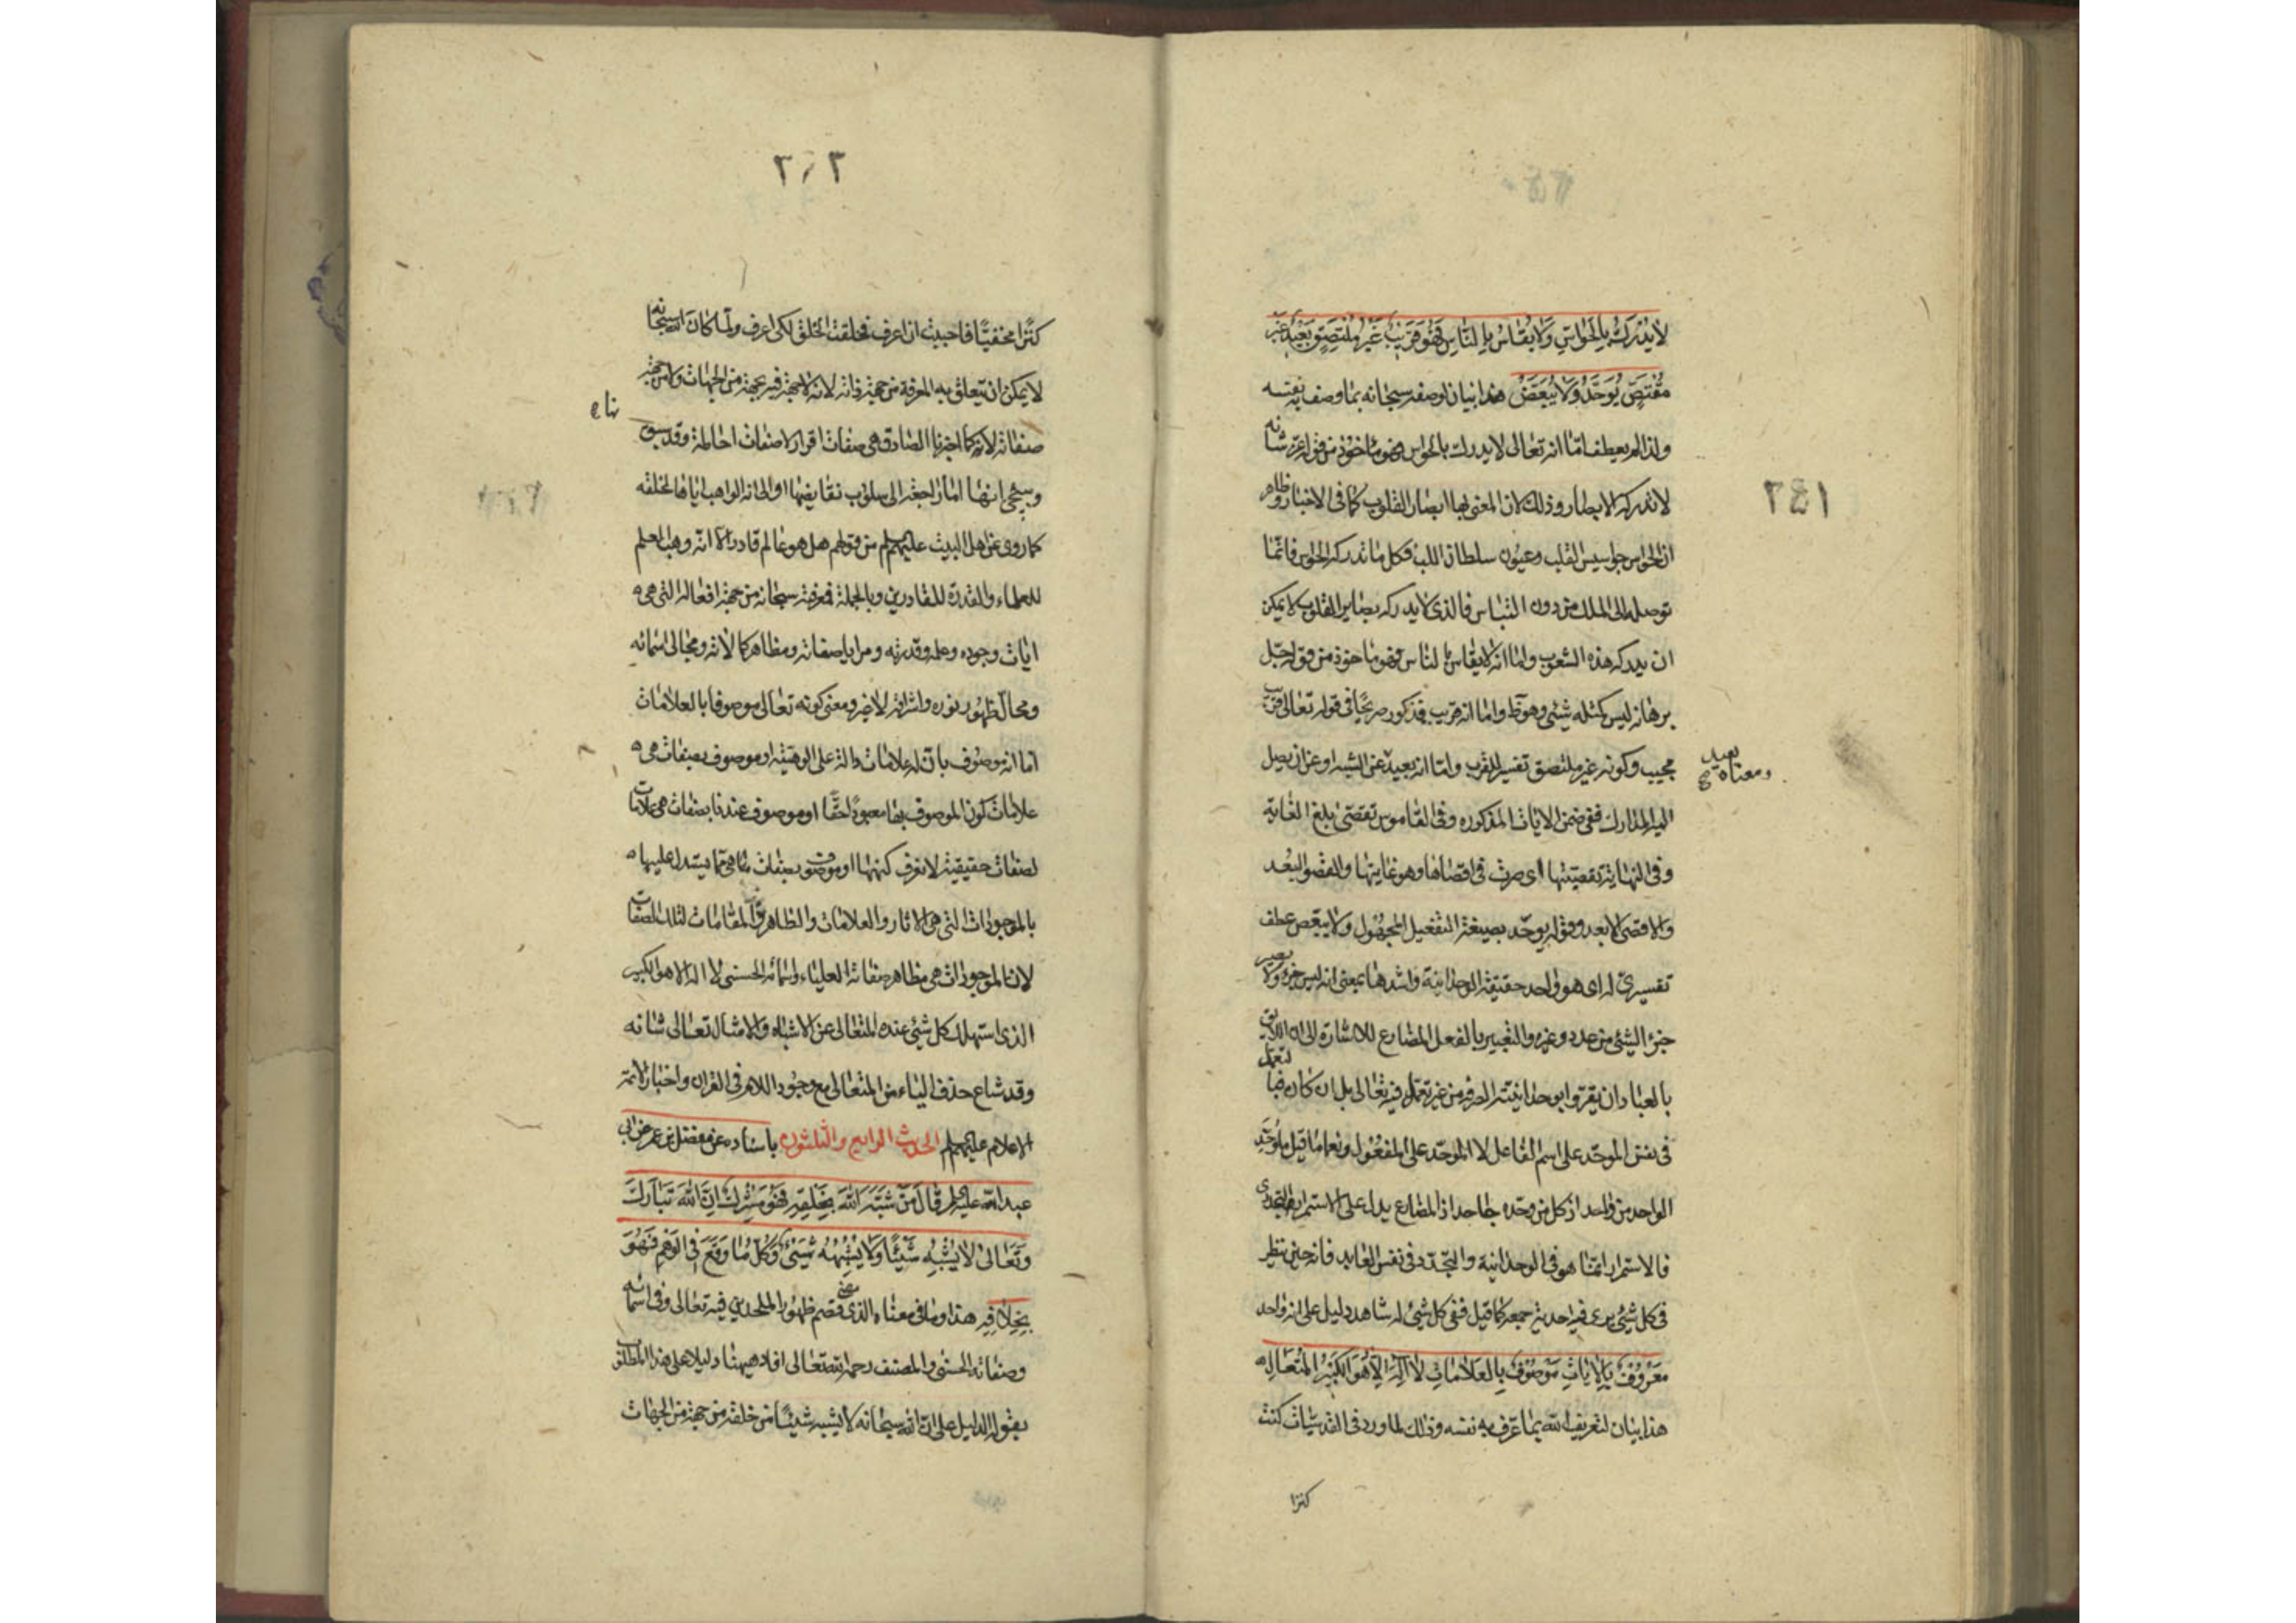 لا يُدْرَكُ بِالحَوَاسِّ وَلا يُقَاسُ بِالنَّاسِ فَهُوَ قَرِيبٌ غَيْرُ مُلْتَصِقٍ وَبَعِيدٌ غَيْرُ
مُتَقَصٍّ يُوَحَّدُ وَلا يُبَعَّضُ هذا بيان لوصفه سبحانه بما وصف به نفسه
ولذا لم يعطف امّا انه تعالى لا يدرك بالحواس فهو مأخوذ من قوله عزّ شانه
لا تدركه الابصار وذلك لان المعنى بها ابصار القلوب كما في الاخبار وظاهر
ان الحواس جواسيس القلب وعيون سلطان اللب فكل ما تدركه الحواس فانّما
توصله الى الملك من دون التباس فالذي لا يدركه بصاير القلوب لا يمكن
ان يدركه هذه الشعوب واما انه لا يقاس بالناس فهو ماخوذ من قوله جلّ
برهانه ليس كمثله شيئ وهو واما انه قريب فمذكور صريحًا في قوله تعالى قريب
مجيب وكونه غير ملتصق تفسير للقرب وامّا انه بعيد عن الشبه او عن ان يصل
بعيد
ومعناه صح
اليه المدارك ففي ضمن الايات المذكوره وفي القاموس تقصّى بلغ الغاية
وفي النهاية تقصيتها اى صرت في اقصاها وهو غايتها والقصو البعد
والاقصى الابعد وقوله يوحّد بصيغة التفعيل المجهول ولا يبعّض عطف
تفسيرى له اى هو واحد حقيقة الوحدانية واشدها بمعنى انه ليس جزء ولا يصير
جزء الشيئ من عدد وغيره والتعبير بالفعل المضارع للاشارة الى ان اللايق
بالعباد ان يقرّوا بوحدانيته الصرفة من غير تعمّل فيه تعالى بل ان كان فبا لتعمل
في نفس الموحّد على اسم الفاعل لا الموحّد على المفعول ونعم ما قيل ما وحّد
الواحد من واحد اذ كل من وحّده جاحد اذ المضارع يدل على الاستمرار التجددى
فالاستمرار انما هو في الوحدانية والتجدّد في نفس العابد فانه حين ينظر
في كل شيئ يرى فيه احدية جمعه كما قيل ففي كل شيئ له شاهد دليل على انه واحد
مَعْرُوفٌ بِالايَاتِ مَوْصُوفٌ بِالعَلامَاتِ لا اِلهَ اِلّا هُوَ الكَبِيرُ المُتَعَالِ
هذا بيان لتعريف الله بما عرّف به نفسه وذلك لما ورد في القدسيّات كنت
كنزا
١٤٢
كنزًا مخفيًّا فاحببت ان اعرف فخلقت الخلق لكي اعرف ولمّا كان الله سبحانه
لا يمكن ان يتعلق به المعرفة من جهة ذاته لانه لا جهة فيه بجهة من الجهات ولا من جهة
صفاته لانه كما اخبرنا الصادق هي صفات اقرار لا صفات احاطة وقد سبق
وسيجئ انها امّا راجعة الى سلوب نقايضها او الى انه الواهب اياها لخلقه
كما روى عن اهل البيت عليهم السلم من قولهم هل هو عالم قادر الا انّه وهب العلم
للعلماء والقدرة للقادرين وبالجملة فمعرفته سبحانه من جهة افعاله التي هي
ايات وجوده وعلمه وقدرته ومرايا صفاته ومظاهر كمالاته ومجالي اسمائه
ومحالّ ظهور نوره واشراقه لا غير ومعنى كونه تعالى موصوفا بالعلامات
امّا انه موصوف بان له علامات دالة على الوهيته او موصوف بصفات هي
علامات كون الموصوف بها معبودًا حقًّا او موصوف عندنا بصفات هي علامات
لصفات حقيقية لا نعرف كنهها او موصوف بصفات ما هي مما يستدل عليها
بالموجودات التي هي الاثار والعلامات والمظاهر والمقامات لتلك الصفات
لان الموجودات هي مظاهر صفاته العلياء واسمائه الحسنى لا اله الا هو الكبير
الذى استهلك كل شيئ عنده المتعالى عن الاشباه والامثال تعالى شانه
وقد شاع حذف الياء من المتعالى مع وجود اللام في القران واخبار الائمة
الاعلام عليهم السلم الحديث الرابع والثلثون باسناده عن مفضل بن عمر عن ابى
عبد الله عليه السلم قَالَ مَنْ شَبَّهَ اللهَ بِخَلْقِهِ فَهُوَ مُشْرِكٌ اِنَّ اللهَ تَبَارَكَ
وَتَعَالىٰ لا يُشْبِهُ شَيْئًا وَلا يُشْبِهُهُ شَيْئٌ وَكُلُّ مَا وَقَعَ فِي الوَهْمِ فَهُوَ
بِخِلافِهِ هذا وما في معناه الذى قصم ظهور الملحدين فيه تعالى وفي اسمائه
وصفاته الحسنى والمصنف رحمه الله تعالى افاد هيهنا دليلا على هذا المطلق
بقوله الدليل على ان الله سبحانه لا يشبه شيئًا من خلقه من جهة من الجهات